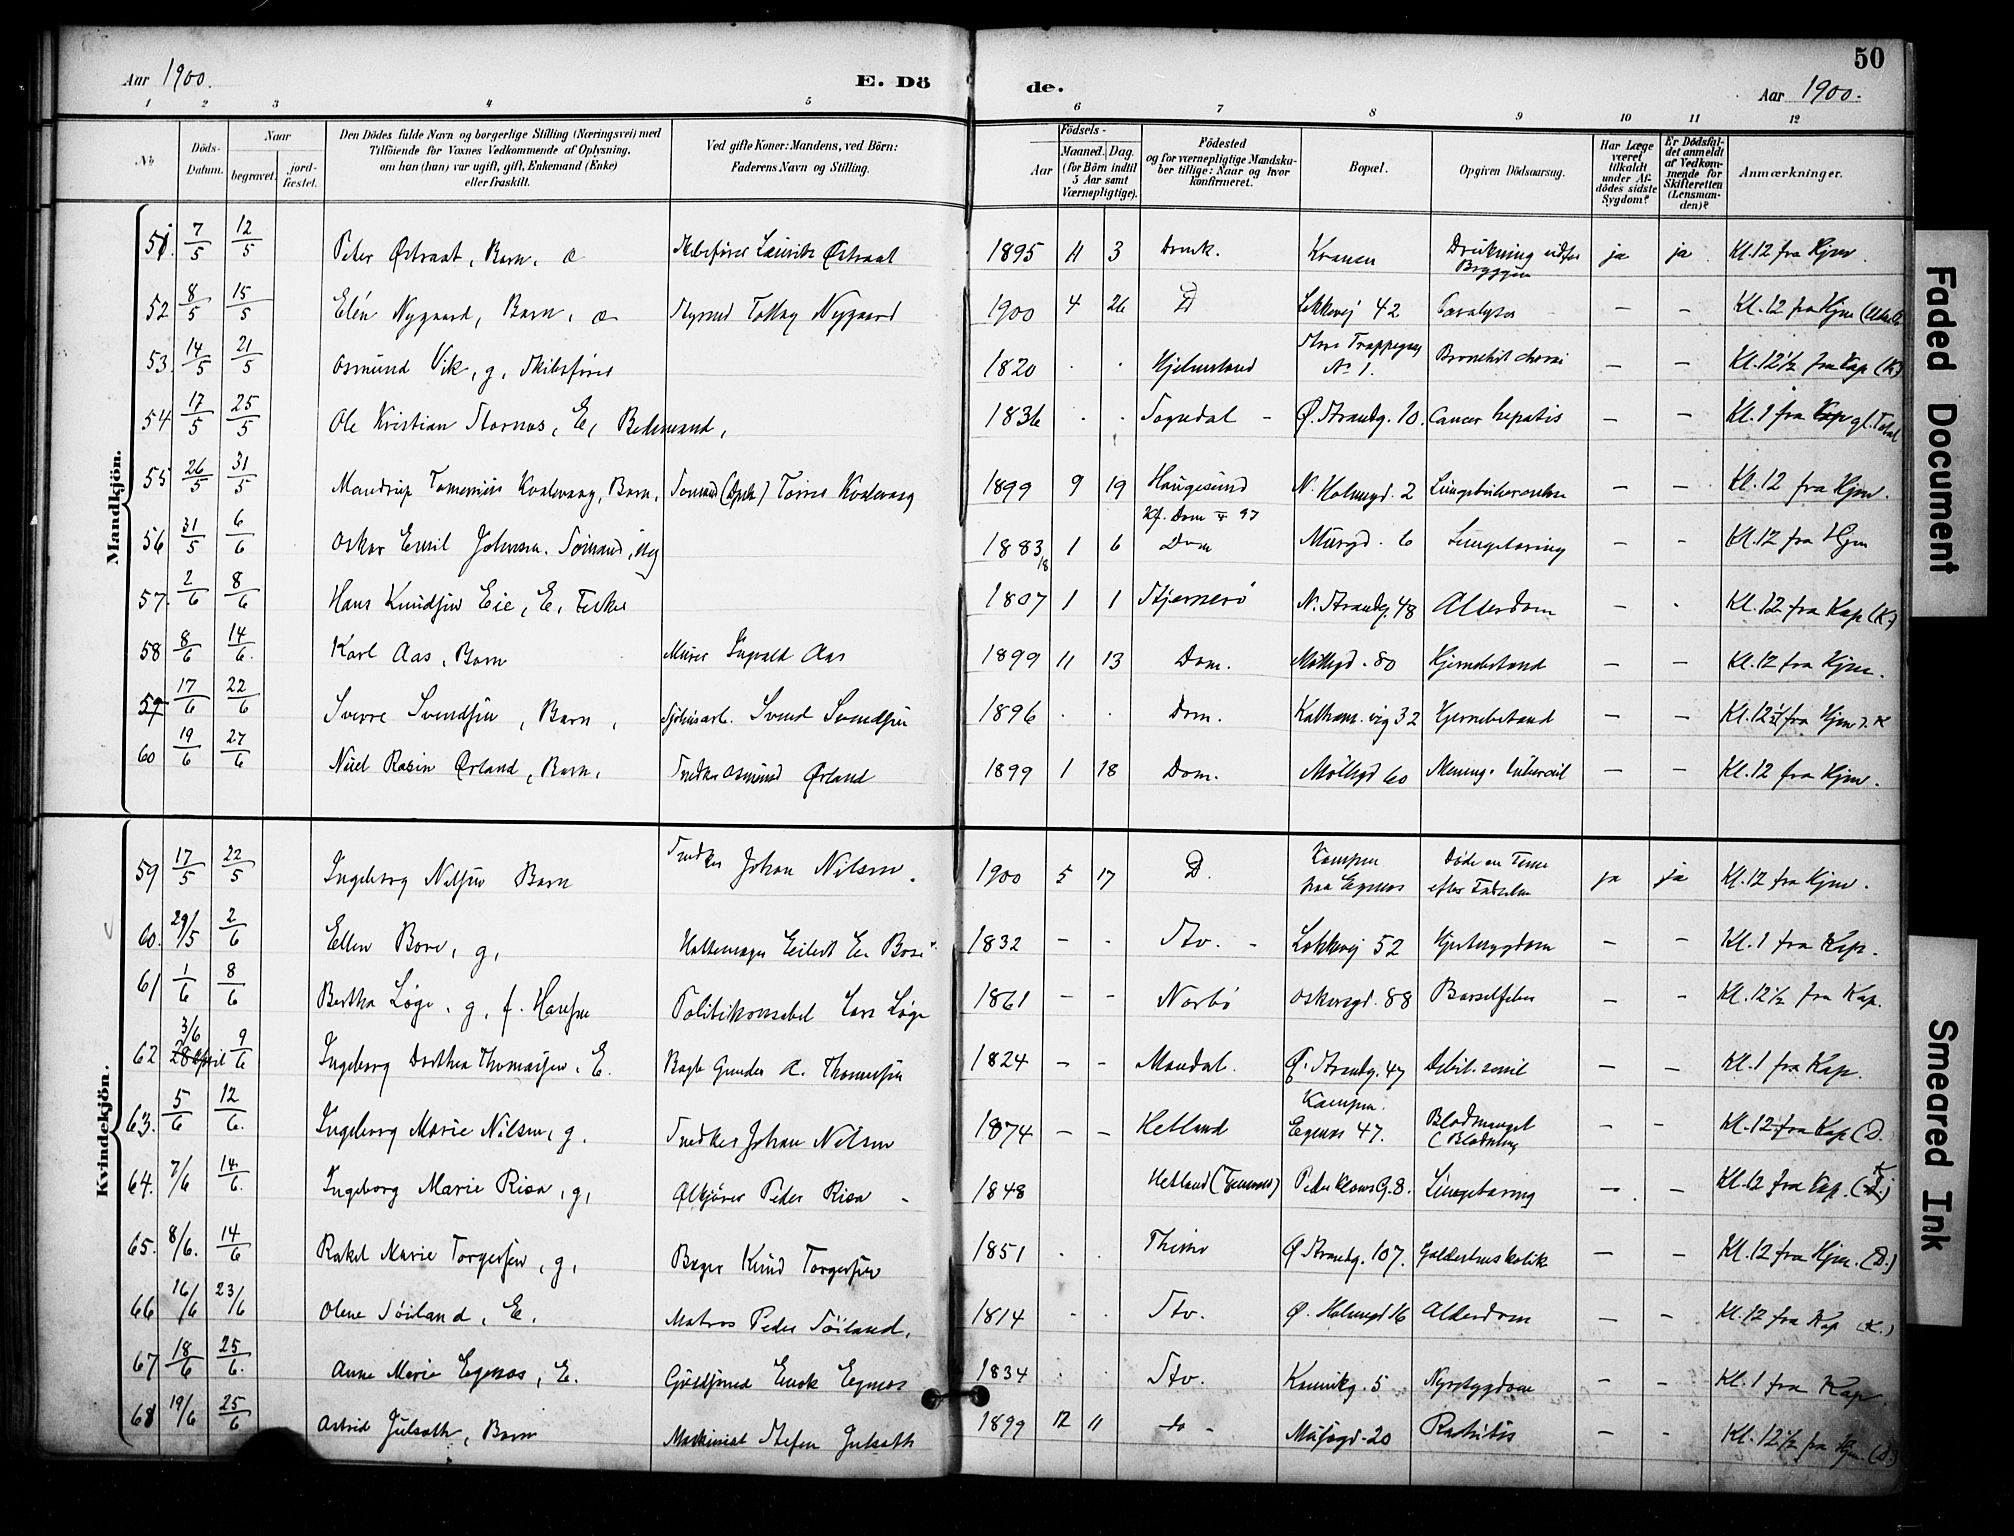 50
Aar 1900. E. Dö de. Aar 1900.
1 2 3 4 5 6 7 8 9 10 11 12
No Döds-Datum. Naar begravet. jordfæstet. Den Dödes fulde Navn og borgerlige Stilling (Næringsvei) med Tilföiende for Voxnes Vedkommende af Oplysning. om han (hun) var ugift, gift, Enkemand (Enke) eller fraskilt. Ved gifte Koner: Mandens, ved Börn: Faderens Navn og Stilling. Födsels- Aar Maaned. Dag. (for Börn indtil 5 Aar samt Værnepligtige). Födested og for værnepligtige Mandskaber tillige: Naar og hvor konfirmeret. Bopæl. Opgiven Dödsaarsag. Har Læge været tilkaldt under Afdödes sidste Sygdom? Er Dödsfaldet anmeldt af Vedkommende for Skifteretten (Lensmanden)? Anmærkninger.
Mandkjön.
51. 7/5 12/5 Peter Østraat, Barn. Skibsfører Lauritz Østraat 1895 11 3 Domk. Kranen Drukning udfor Bryggen ja ja Kl. 12 fra Hjm.
52 8/5 15/5 Nygaard, Barn, Styrmd Nygaard 1900 4 26 D Lokkevej 42 Paralysis – – Kl. 12 fra Hjm
53. 14/5 21/5 Osmund Vik, g, Skibsfører 1820 . . Hjelmeland No 1. – – Kl. 12½ fra Kap (K)
54 17/5 25/5 Ole Kristian Stornæs, E, Bedemand, 1836 . . Sogndal – Ø. Strandg. 10. Cancer hepatis – – Kl. 1 fra Kap gl.
55 26/5 31/5 Kvalevaag, Barn, Tørres Kvalevaag 1899 9 19 Haugesund N. Holmegd. 2 Lungetuberculose – – Kl. 12 fra Hjm.
56 31/5 6/6 Oskar Emil Johnsen. Sømand, ug 1883 1/18 1 6 Kf. Dom 97 Dom Murgd. 6 Lungetæring – – Kl. 12 fra Hjm
57. 2/6 8/6 Hans Knudsen Eie, E, Fisker 1807 1 1 Stjernerø N. Strandg. 48 Alderdom – . Kl. 12 fra Kap (K)
58 8/6 14/6. Karl Aas, Barn Murer Ingvald Aas 1899 11 13 Dom. Møllegd. 80 Hjernebetænd – – Kl. 12 fra Hjm.
59 17/6 22/6 Sverre Svendsen, Barn, Svend Svendsen 1896 . . Dom. 32 Hjernebetænd – – Kl. 12½ fra Hjm
60 19/6 27/6 Ørland, Barn, Snedker Osmund Ørland 1899 1 18 Dom. Møllegd 60 Mening. tubercul – – Kl. 12 fra Hjm.
Kvindekjön.
59 17/5 22/5 Ingeborg Nilsen Barn Snedker Johan Nilsen. 1900 5 17 D. Kampen paa Egenes Døde en Time efter Fødselen ja ja Kl. 12 fra Hjm.
60. 29/5 2/6 Ellen Bore, g, Hattemager Eilert Bore 1832 – – Stv. – Lokkevej 52 Hjertesygdom – – Kl. 1 fra Kap.
61 1/6 8/6 Bertha Løge, g, f. Hansen Politikonstabel Lars Løge 1861 – – Narbø Oskarsgd. 88 Barselfeber – – Kl. 12½ fra Kap.
62 3/6 28 April 9/6 Ingeborg Dorthea Thomassen, E. Gunder A. Thomassen 1824 – – Mandal. Ø. Strandg. 47 Debil. senil – – Kl. 1 fra Kap.
63. 5/6 12/6. Ingeborg Marie Nilsen, g, Snedker Johan Nilsen 1874 – – Hetland Kampen. Egenæs 47. Blodmangel (Blødning – – Kl. 12 fra Kap (D.
64. 7/6 14/6. Ingeborg Marie Risa, g, Ølkjører Peder Risa – 1848 Hetland Peder Klows G. 8. Lungetæring – . – Kl. 12 fra Kap.
65. 8/6. 14/6 Rakel Marie Torgersen, g, Bager Knud Torgersen 1851 . . Thime Ø. Strandg. 107. Galdestenskolik – – Kl. 12 fra Hjm. (D.)
66 16/6 23/6 Olene Søiland, E. Matros Peder Søiland. 1814 . . Stv. Ø. Holmegd 16 Alderdom – – Kl. 12 fra Kap (K.)
67 18/6 25/6. Anne Marie Egenæs, E. Guldsmed Enok Egenæs 1834 . . Stv. Kannikg. 5 Nyresygdom – – Kl. 1 fra Kap
68 19/6 25/6 Astrid Julseth, Barn Maskinist Stefen Julseth 1899 12 11 do – Musegd. 20 Rachitis – – Kl. 12½ fra Hjm. (D.)
Faded Document
Smeared Ink